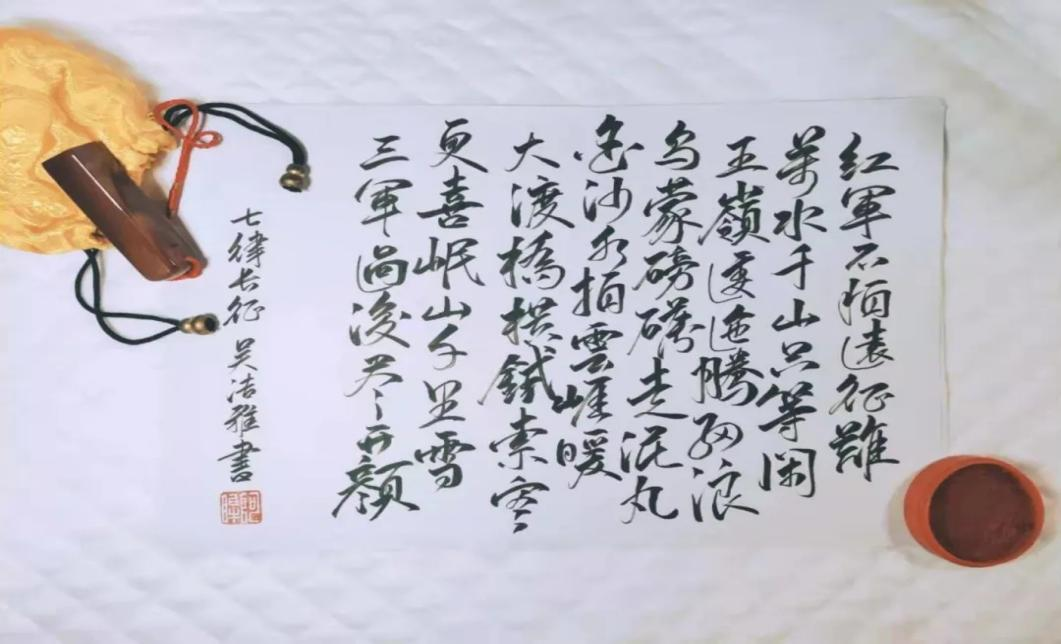 红軍不怕遠征難
萬水千山只等閑
五嶺逶迤騰细浪
乌蒙磅礴走泥丸
金沙水拍雲崖暖
大渡橋横鐵索寒
更喜岷山千里雪
三軍過後尽开顔
七律长征 吴洁雅書